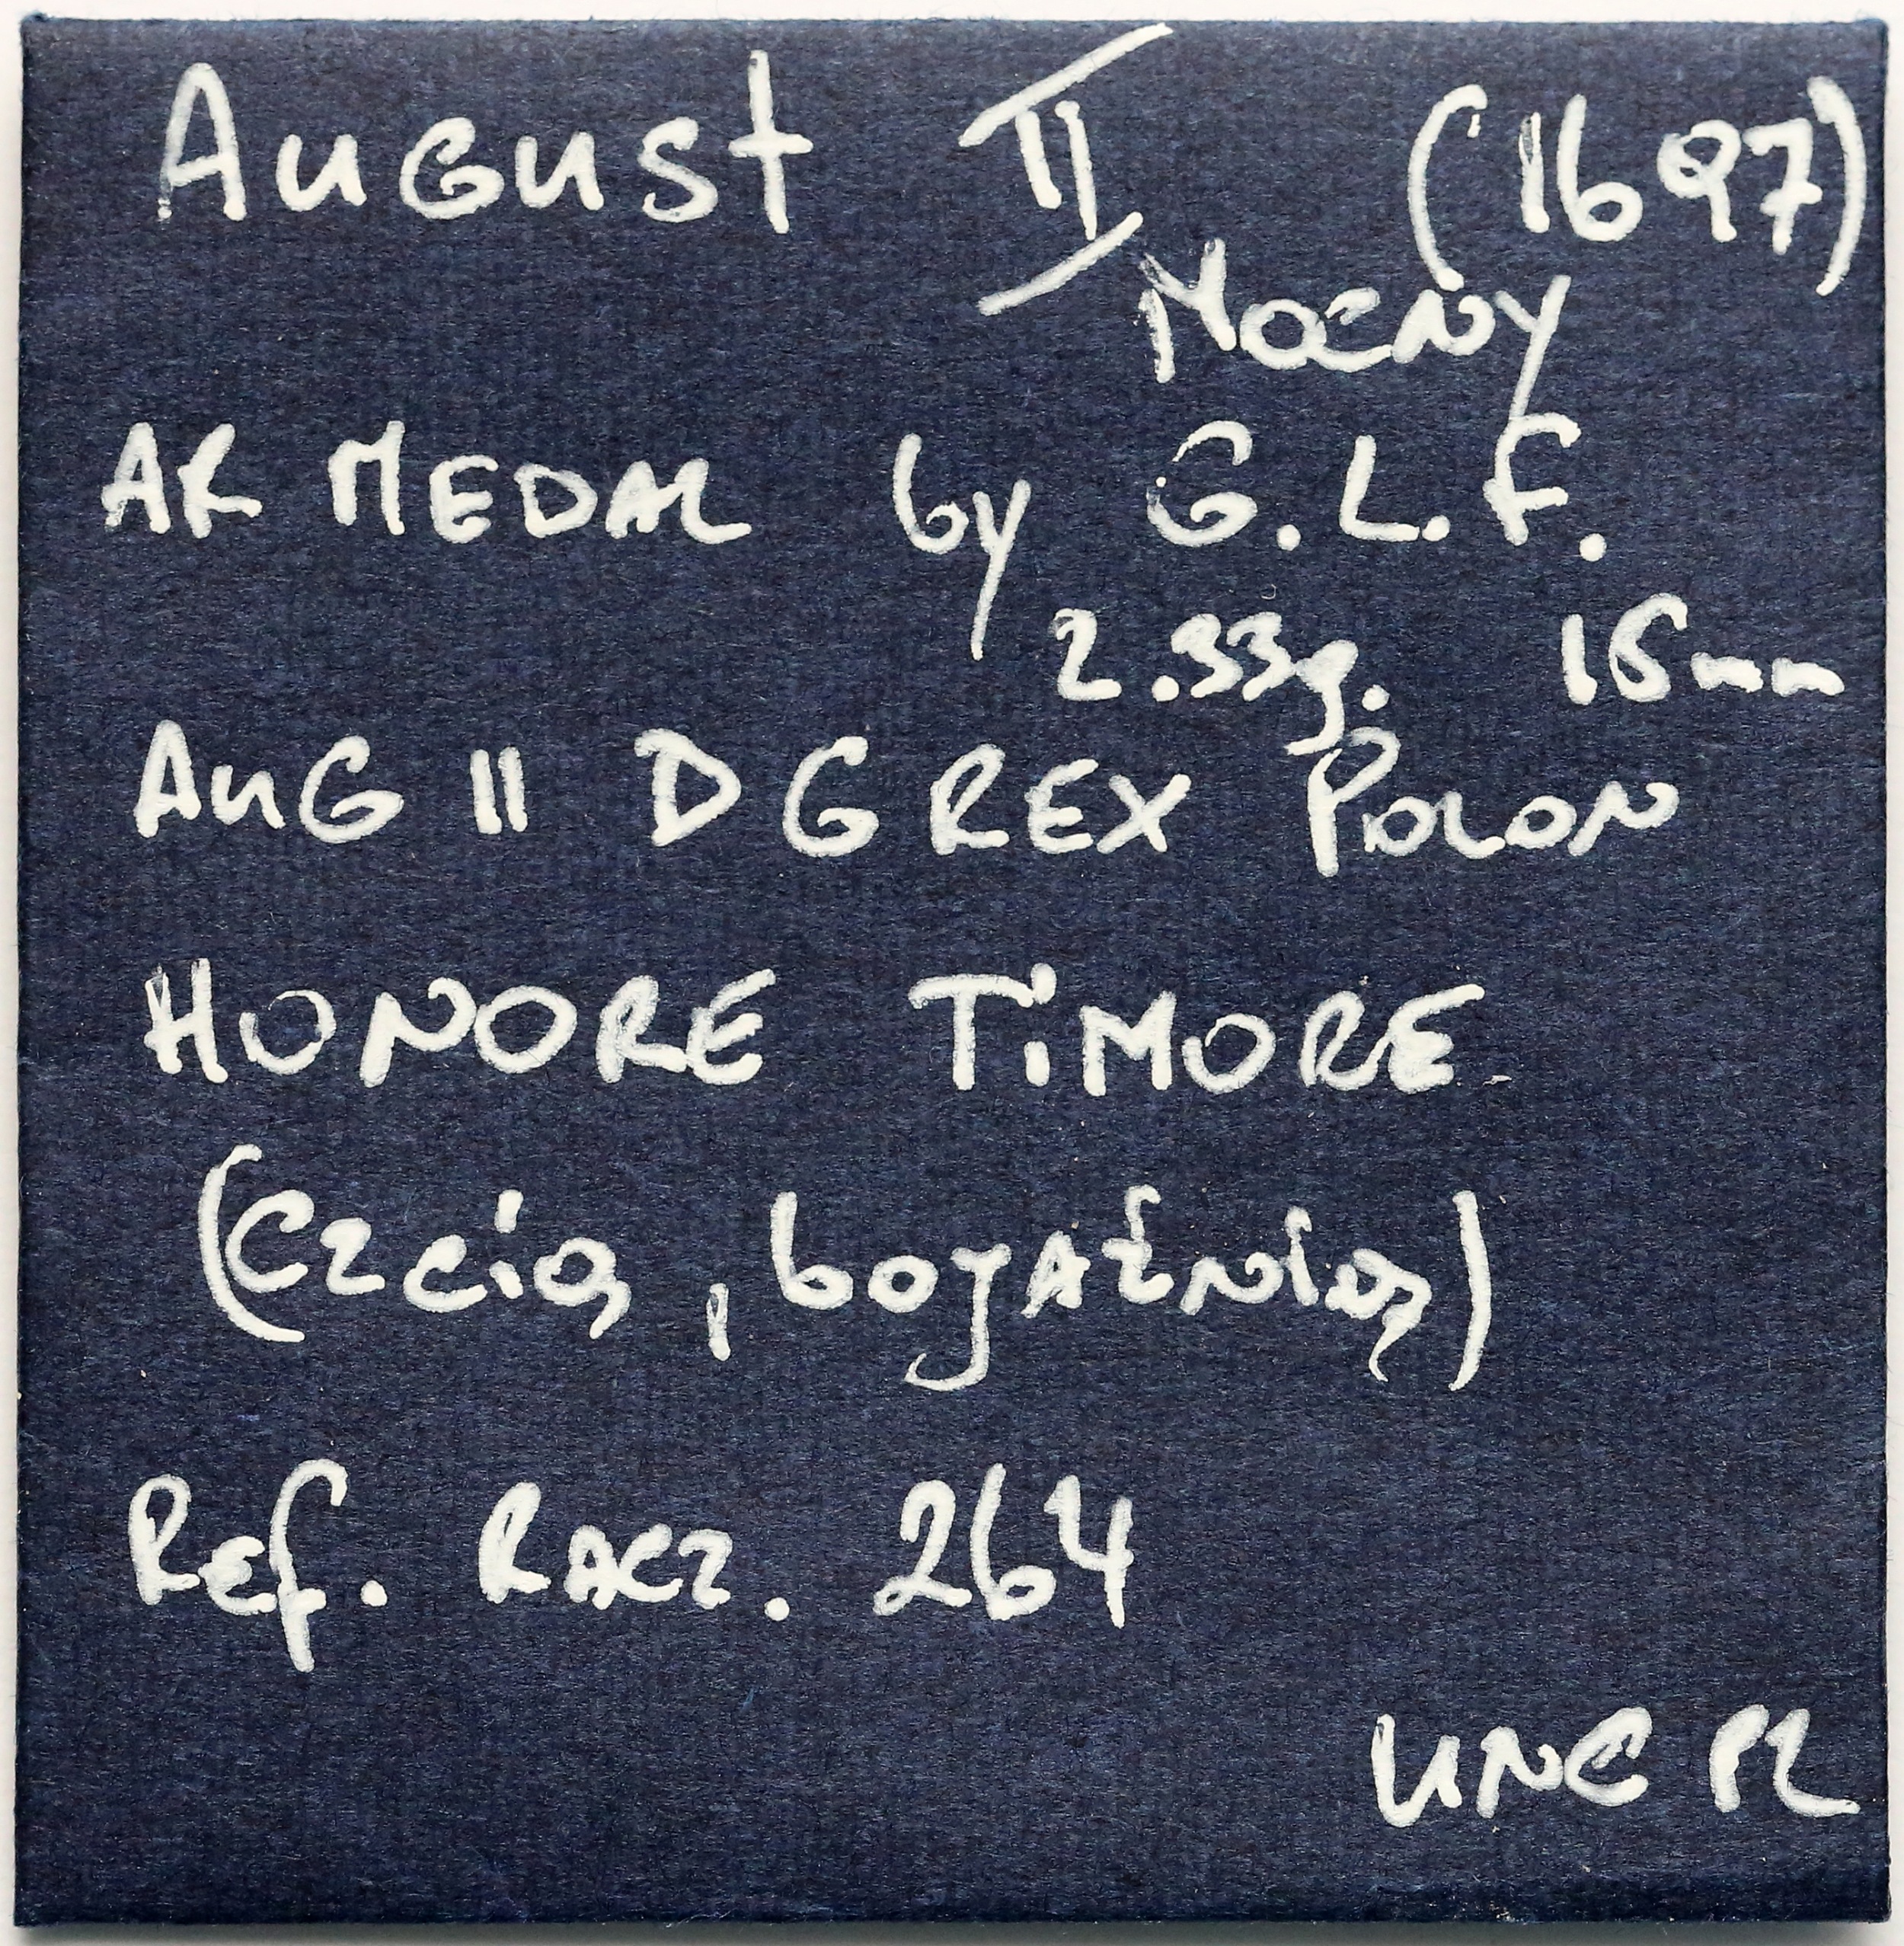 August II (1697)
Mocny
AR MEDAL by G.L.F.
2.33g. 18mm
AUG II D G REX POLON
HONORE TiMORE
(czcią, bojaźnią)
Ref. RACZ. 264
UNC PL